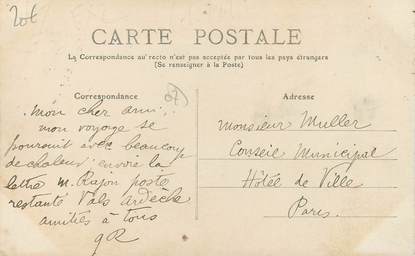 20€
CARTE POSTALE
La Correspondance au recto n'est pas acceptée par tous les pays étrangers
(Se renseigner à la Poste)
Correspondance
mon cher ami
mon voyage se
poursuit avec beaucoup
de chaleur envoie la
lettre M. Rajon poste
restante Vals Ardèche
amitiés à tous
GR
Adresse
Monsieur Muller
Conseil Municipal
Hôtel de Ville
Paris.